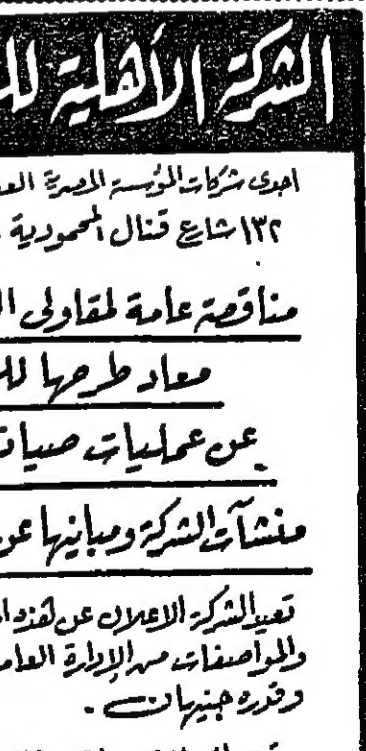 الشركة الأهلية لل
احدى شركات المؤسسة المصرية الع
١٣٢ شارع قنال المحمودية
مناقصة عامة لمقاولى ال
معاد طرحها لل
عن عمليات صيان
منشآت الشركة ومبانيها عن
تعيد الشركة الاعلان عن هذه ا
والمواصفات من الإدارة العام
وقدره جنيهان -